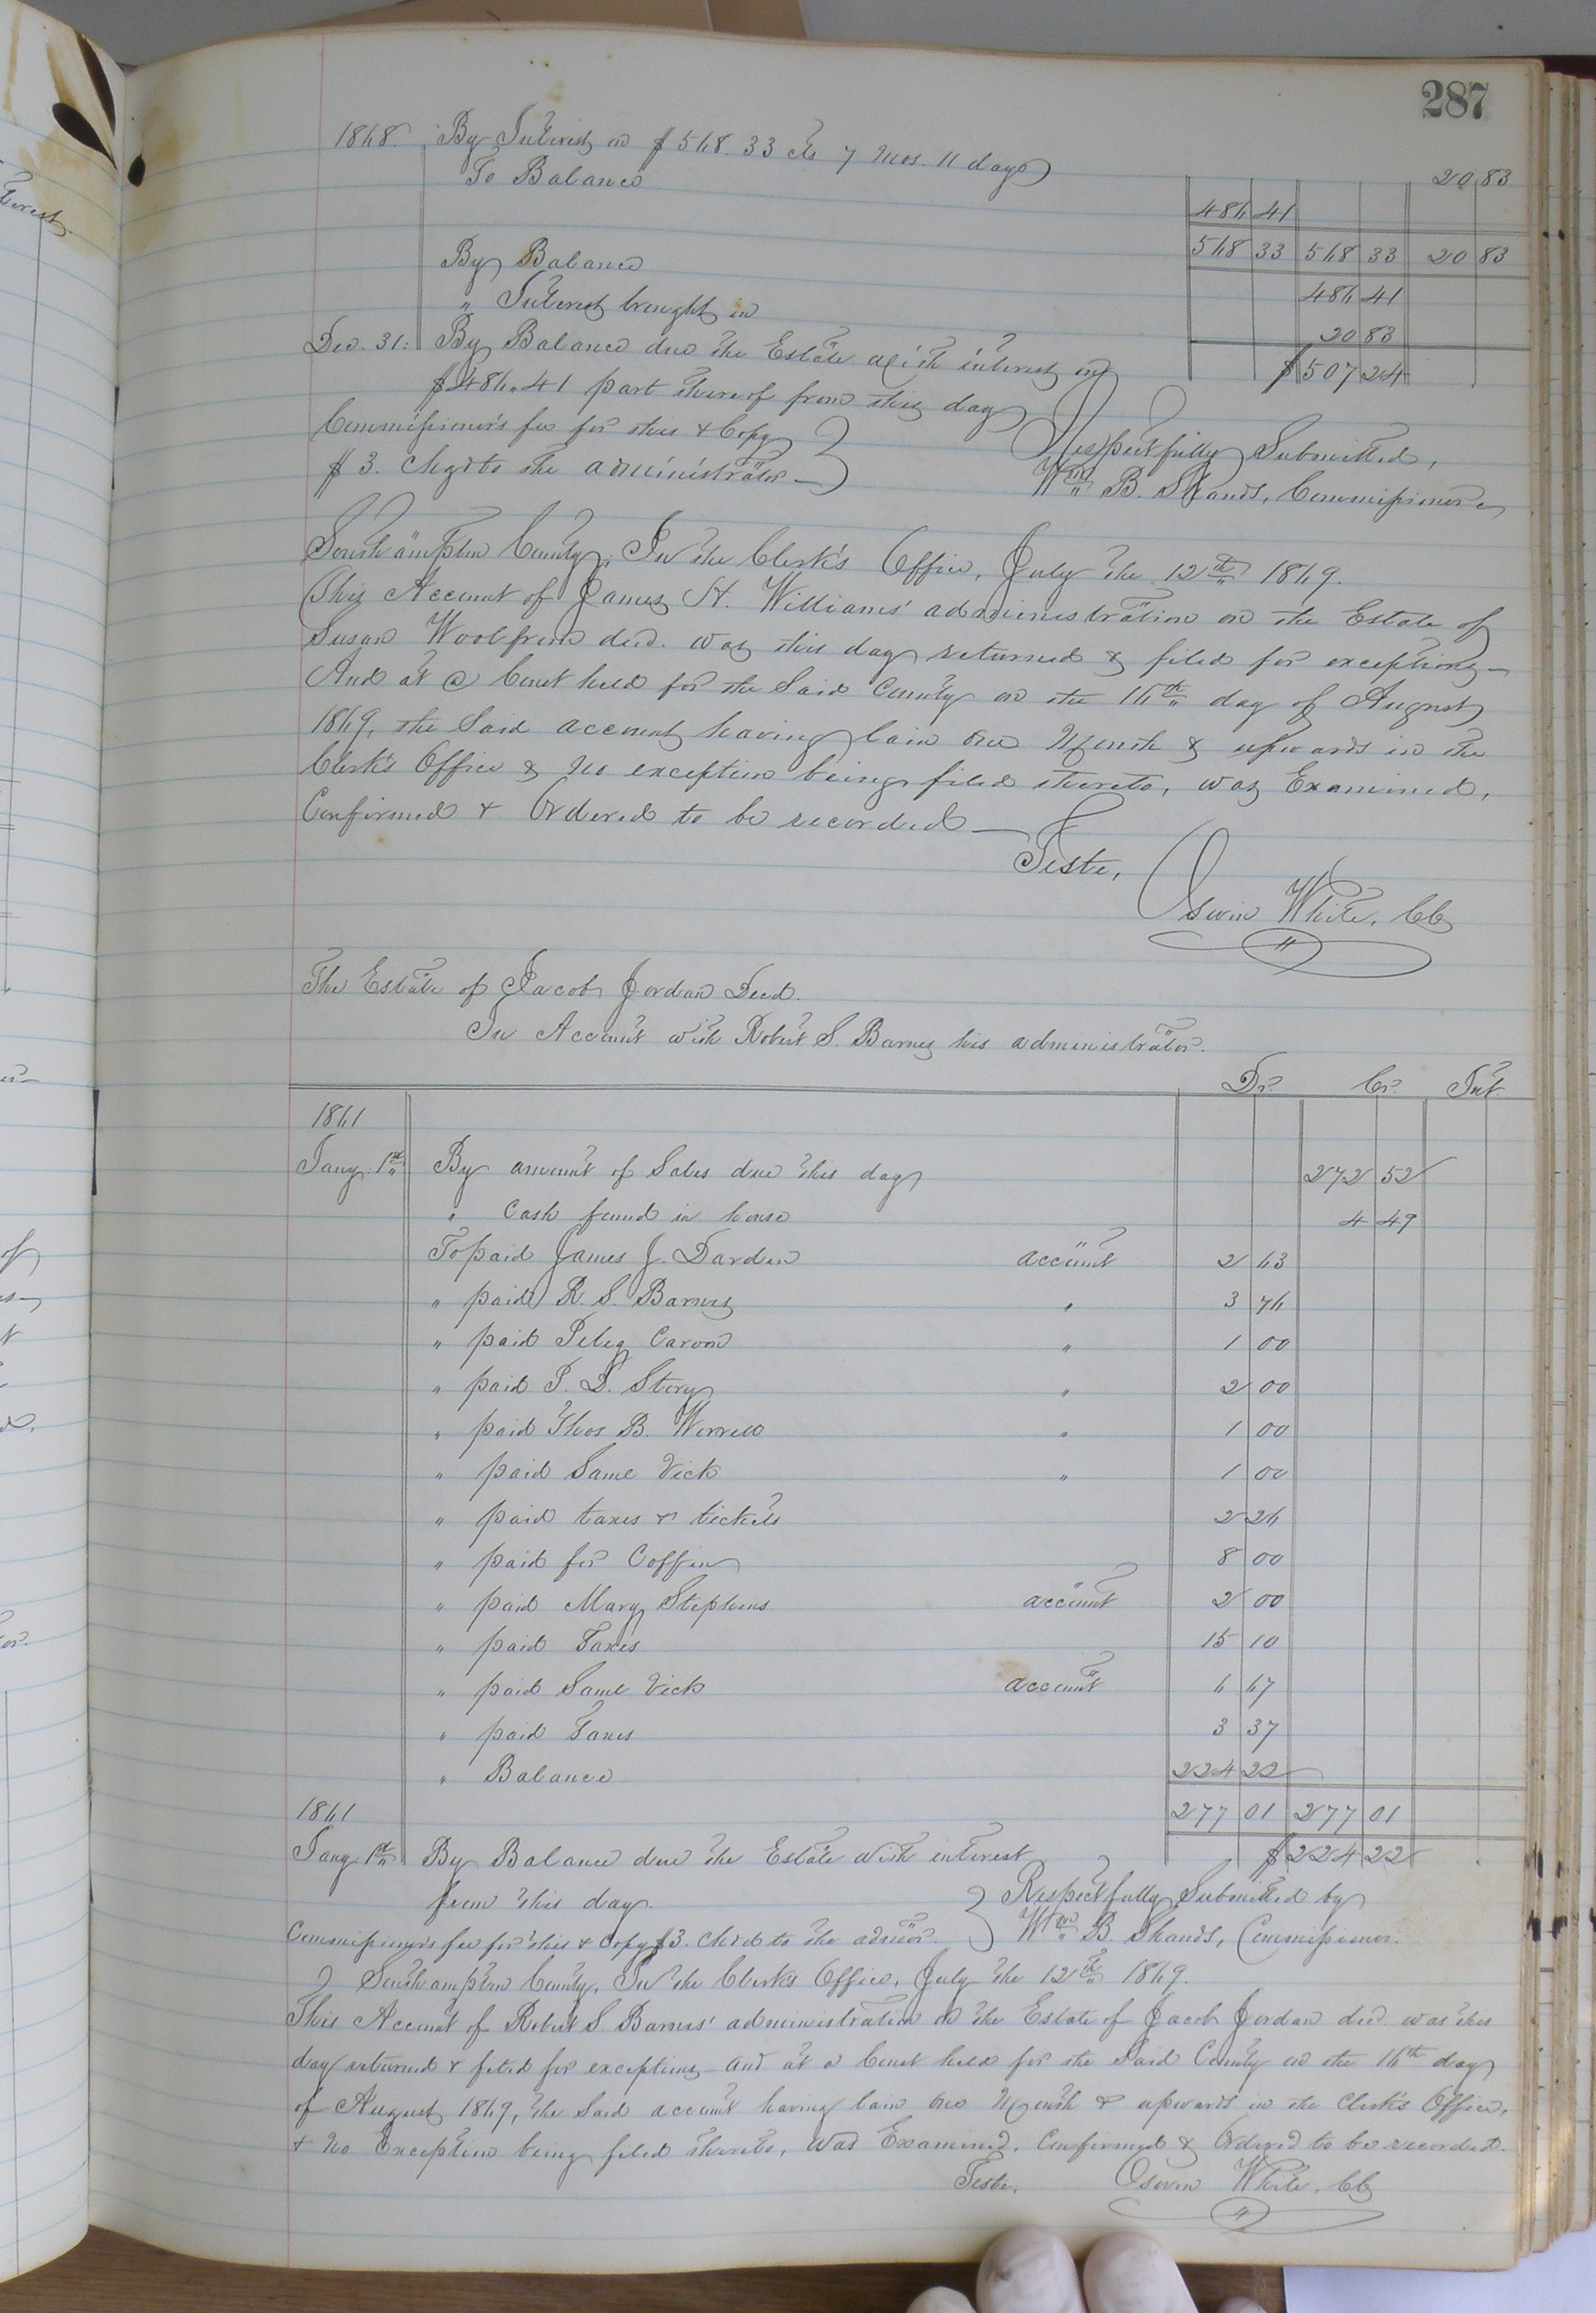 287
1868. By Interest on $568.33 cts 7 Mos. 11 days 20 83
To Balance 486 41
568 33 568 33 20 83
By Balance 486 41
" Interest brought in 20 83
Dec. 31: By Balance due the Estate with interest on $507 24
$486.41 part thereof from this day
Commissioner's fee for this & Copy
$3. chgd to the administrator
Respectfully Submitted,
Wm B. Shands, Commissioner
Southampton County, In the Clerk's Office, July the 12th 1869.
This Account of James H. Williams' administration on the Estate of
Susan Woolfrem decd. was this day returned & filed for exceptions
And at a Court held for the Said County on the 16th day of August
1869, the Said account having lain one Month & upwards in the
Clerk's Office & no exception being filed thereto, was Examined,
Confirmed & Ordered to be recorded
Teste,
Oswin White, CC
The Estate of Jacob Jordan Decd.
In Account with Robert S. Barnes his administrator.
Dr. Cr. Int.
1861
Jany. 1st By amount of Sales due this day 272 52
" Cash found in house 4 49
To paid James J. Darden account 2 63
" paid R. S. Barnes " 3 76
" paid Peleg Carom " 1 00
" paid P. D. Story " 2 00
" paid Thos B. Worrell " 1 00
" paid Saml Vick " 1 00
" paid taxes & tickets 2 26
" paid for Coffin 8 00
" paid Mary Stephens account 2 00
" paid Taxes 15 10
" paid Saml Vick account 6 67
" paid Taxes 3 37
" Balance 224 22
1861 277 01 277 01
Jany. 1st By Balance due the Estate with interest $224 22
from this day.
Commissioner's fee for this & Copy $3. chd to the admor.
Respectfully Submitted by
Wm B. Shands, Commissioner.
Southampton County, In the Clerk's Office, July the 12th 1869.
This Account of Robert S. Barnes' administration on the Estate of Jacob Jordan decd was this
day returned & filed for exceptions and at a Court held for the Said County on the 16th day
of August 1869, the Said account having lain one Month & upwards in the Clerk's Office,
& no Exception being filed thereto, was Examined, Confirmed & Ordered to be recorded.
Teste, Oswin White, CC